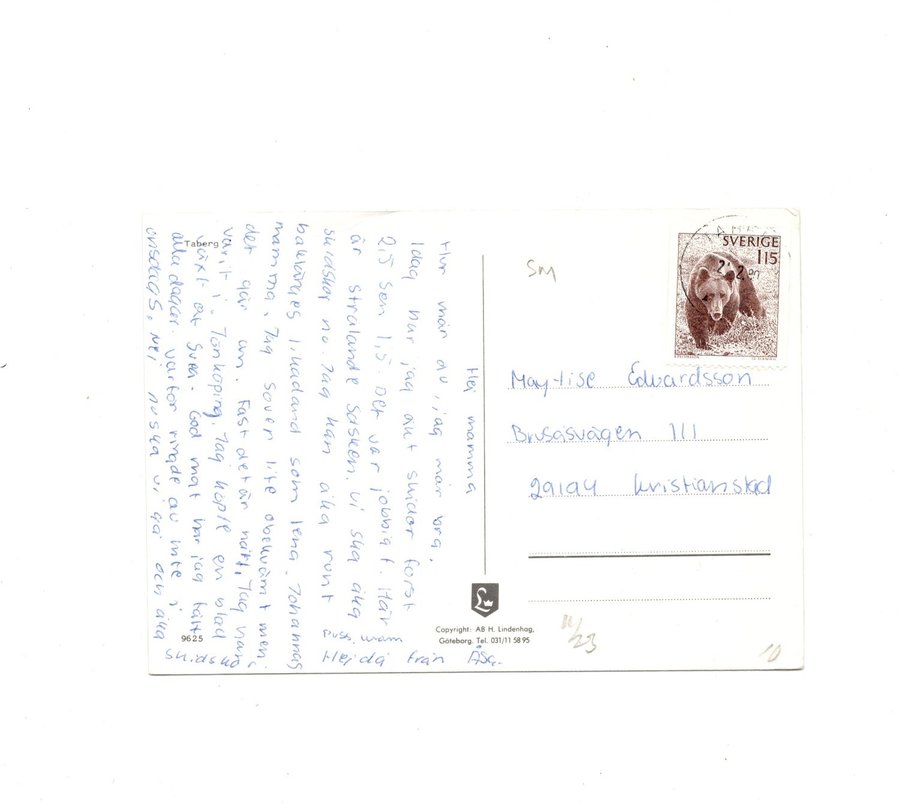 Hej mamma
Hur mår du, jag mår bra,
Idag har jag åkt skidor först
2,5 sen 1,5. Det var jobbigt. Här
är strålande solsken. Vi ska åka
skridskor nu. Jag kan åka runt
baklänges likadand som lena. Johannas
mamma. Jag sover lite obekvämt men
det går an. Fast det är nått. Jag har
varit i Jönköping. Jag köpte en blad
växt åt Sven. God mat har jag fått
alla dagar. Varför ringde du inte i
onsdags. Nej nu ska vi gå och åka
skidsko
puss, kram
Hejdå från Åsa.
Taberg
9625
SM
SVERIGE
115
May-Lise Edvardsson
Brusasvägen 111
29194 Kristianstad
Copyright: AB H. Lindenhag,
Göteborg. Tel. 031/11 58 95
10